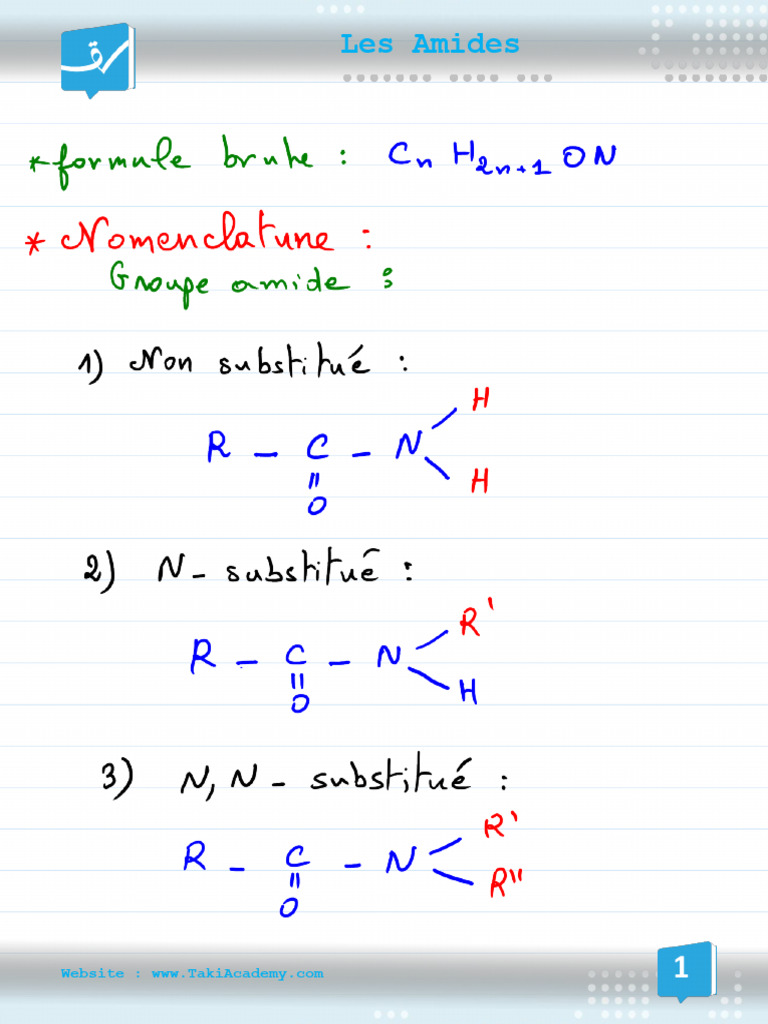 Les Amides
* formule brute : CnH2n+1ON
* Nomenclature :
Groupe amide :
1) Non substitué :
H
R - C - N
H
O
2) N - substitué :
R'
R - C - N
H
O
3) N, N - substitué :
R'
R - C - N
R"
O
Website : www.TakiAcademy.com
1